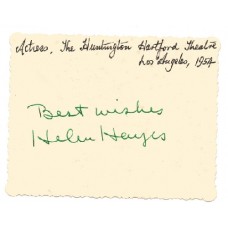 Actress, The Huntington Hartford Theatre
Los Angeles, 1954
Best wishes
Helen Hayes